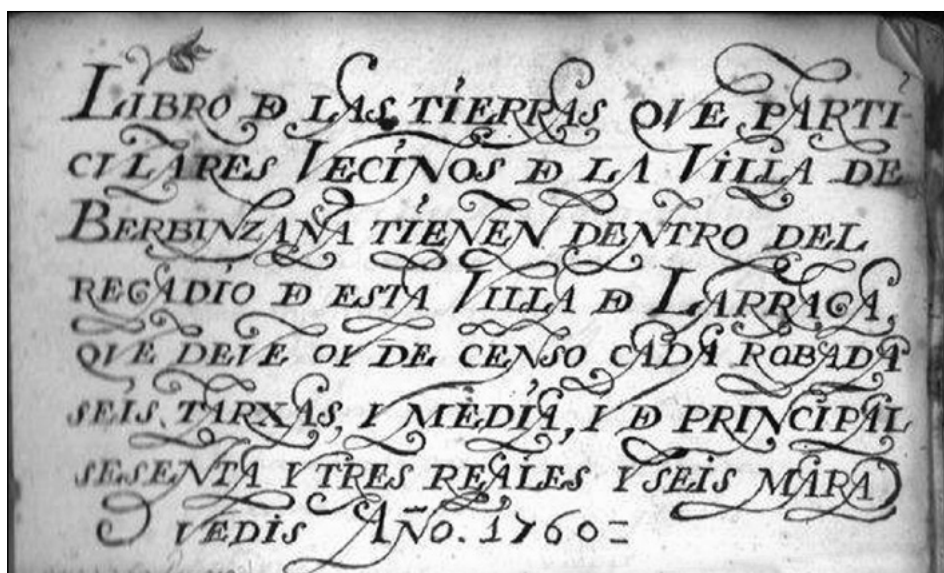 LIBRO DE LAS TIERRAS QVE PARTI-
CVLARES VECINOS DE LA VILLA DE
BERBINZANA TIENEN DENTRO DEL
REGADIO DE ESTA VILLA DE LARRAGA,
QVE DEVE OY DE CENSO CADA ROBADA
SEIS TARXAS, I MEDIA, I DE PRINCIPAL
SESENTA Y TRES REALES Y SEIS MARA
VEDIS AÑO. 1760=